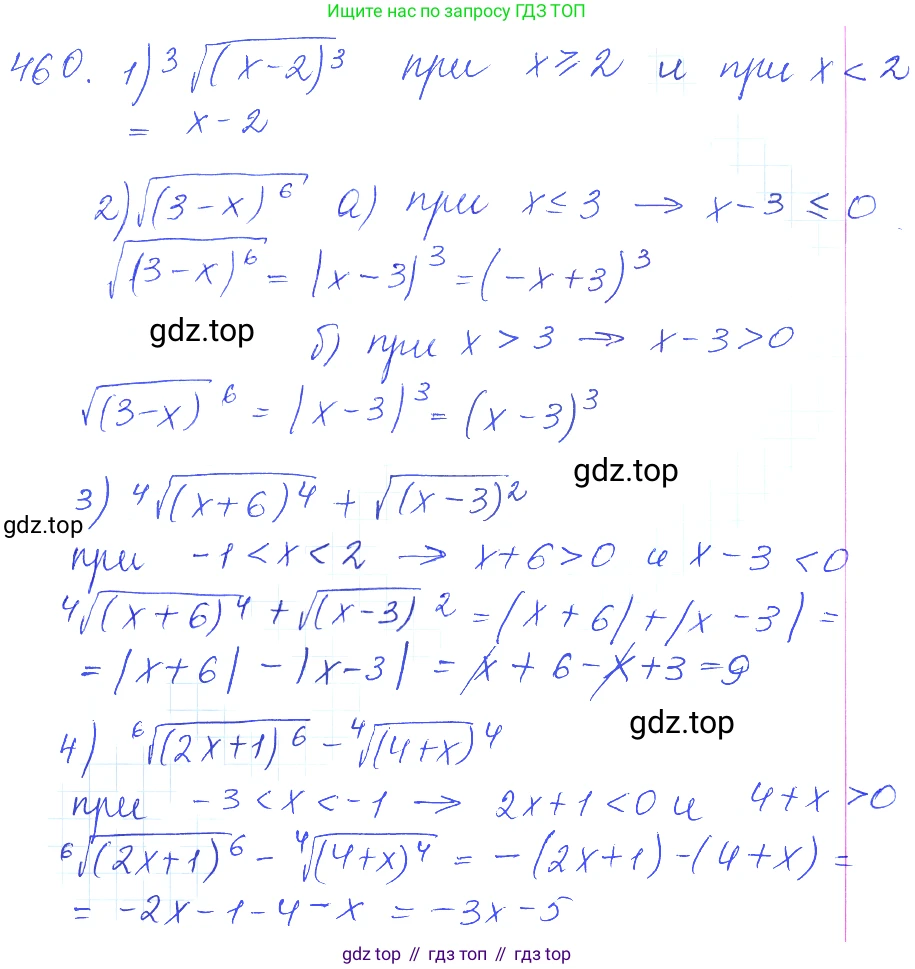 Ищите нас по запросу ГДЗ ТОП
460. 1) ³√(x-2)³ при x ⩾ 2 и при x < 2
= x - 2
2) √(3-x)⁶ а) при x ≤ 3 → x-3 ≤ 0
√(3-x)⁶ = |x-3|³ = (-x+3)³
gdz.top
б) при x > 3 → x-3>0
√(3-x)⁶ = |x-3|³ = (x-3)³
gdz.top
3) ⁴√(x+6)⁴ + √(x-3)²
gdz.top
при -1 < x < 2 → x+6>0 и x-3 <0
⁴√(x+6)⁴ + √(x-3)² = |x+6| + |x-3| =
= |x+6| - |x-3| = x + 6 - x + 3 = 9
gdz.top
4) ⁶√(2x+1)⁶ - ⁴√(4+x)⁴
при -3 < x < -1 → 2x+1 < 0 и 4+x >0
⁶√(2x+1)⁶ - ⁴√(4+x)⁴ = -(2x+1)-(4+x) =
= -2x-1-4-x = -3x-5
gdz.top // гдз топ // гдз.top